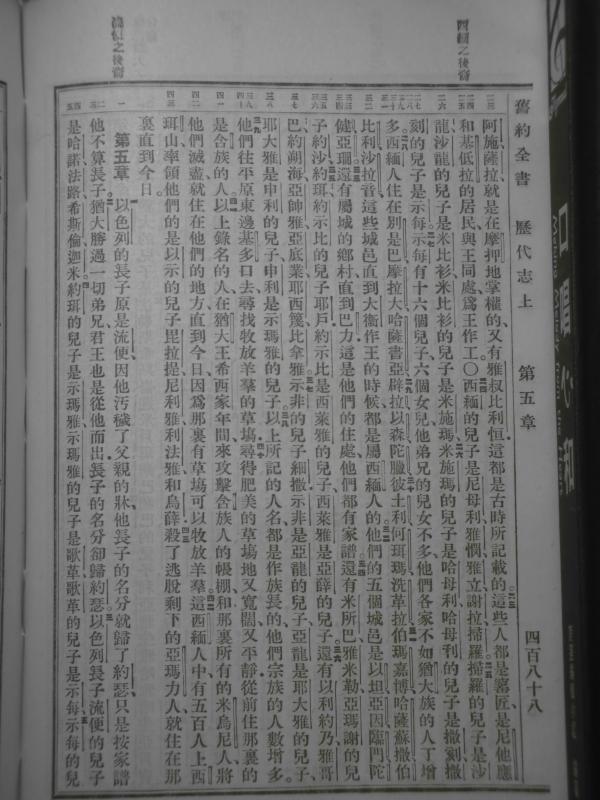 舊約全書　歷代志上　第五章　四百八十八
西緬之後裔
流便之後裔
阿施薩拉就是在摩押地掌權的又有雅叔比利恒這都是古時所記載的這些人都是窰匠是尼他應
和基低拉的居民與王同處爲王作工〇西緬的兒子是尼母利雅憫雅立謝拉掃羅掃羅的兒子是沙
龍沙龍的兒子是米比衫米比衫的兒子是米施瑪米施瑪的兒子是哈母利哈母利的兒子是撒刻撒
刻的兒子是示每示每有十六個兒子六個女兒他弟兄的兒女不多他們各家不如猶大族的人丁增
多西緬人住在別是巴摩拉大哈薩書亞辟拉以森陀臘彼土利何珥瑪洗革拉伯瑪嘉博哈薩蘇撒伯
比利沙拉音這些城邑直到大衞作王的時候都是屬西緬人的他們的五個城邑是以坦亞因臨門陀
健亞珊還有屬城的鄉村直到巴力這是他們的住處他們都有家譜還有米所巴雅米勒亞瑪謝的兒
子約沙約珥約示比的兒子耶戶約示比是西萊雅的兒子西萊雅是亞薛的兒子還有以利約乃雅哥
巴約朔海亞帥雅亞底業耶西篾比拿雅示非的兒子細撒示非是亞龍的兒子亞龍是耶大雅的兒子
耶大雅是申利的兒子申利是示瑪雅的兒子以上所記的人名都是作族長的他們宗族的人數增多
他們往平原東邊基多口去尋找牧放羊羣的草塲尋得肥美的草塲地又寬闊又平靜從前住那裏的
是含族的人以上錄名的人在猶大王希西家年間來攻擊含族人的帳棚和那裏所有的米烏尼人將
他們滅盡就住在他們的地方直到今日因爲那裏有草塲可以牧放羊羣這西緬人中有五百人上西
珥山率領他們的是以示的兒子毘拉提尼利雅利法雅和烏薛殺了逃脫剩下的亞瑪力人就住在那
裏直到今日
第五章　以色列的長子原是流便因他汚穢了父親的牀他長子的名分就歸了約瑟只是按家譜
他不算長子猶大勝過一切弟兄君王也是從他而出長子的名分卻歸約瑟以色列長子流便的兒子
是哈諾法路希斯倫迦米約珥的兒子是示瑪雅示瑪雅的兒子是歌革歌革的兒子是示每示每的兒